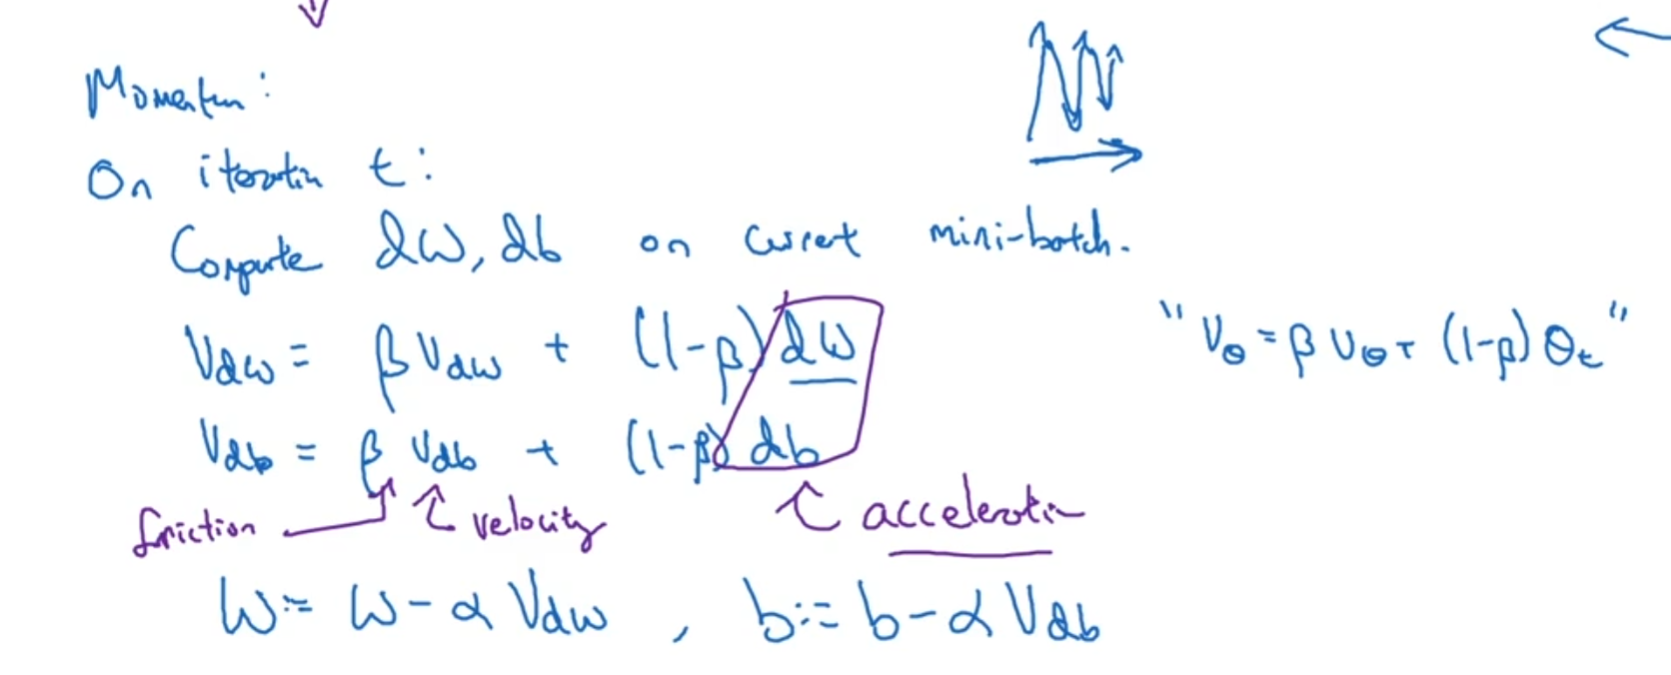 Momentum:
On iteration t:
Compute dW, db on current mini-batch.
Vdw = β Vdw + (1-β) dW
"Vθ = β Vθ + (1-β) θt"
Vdb = β Vdb + (1-β) db
friction velocity acceleration
W := W - α Vdw , b := b - α Vdb